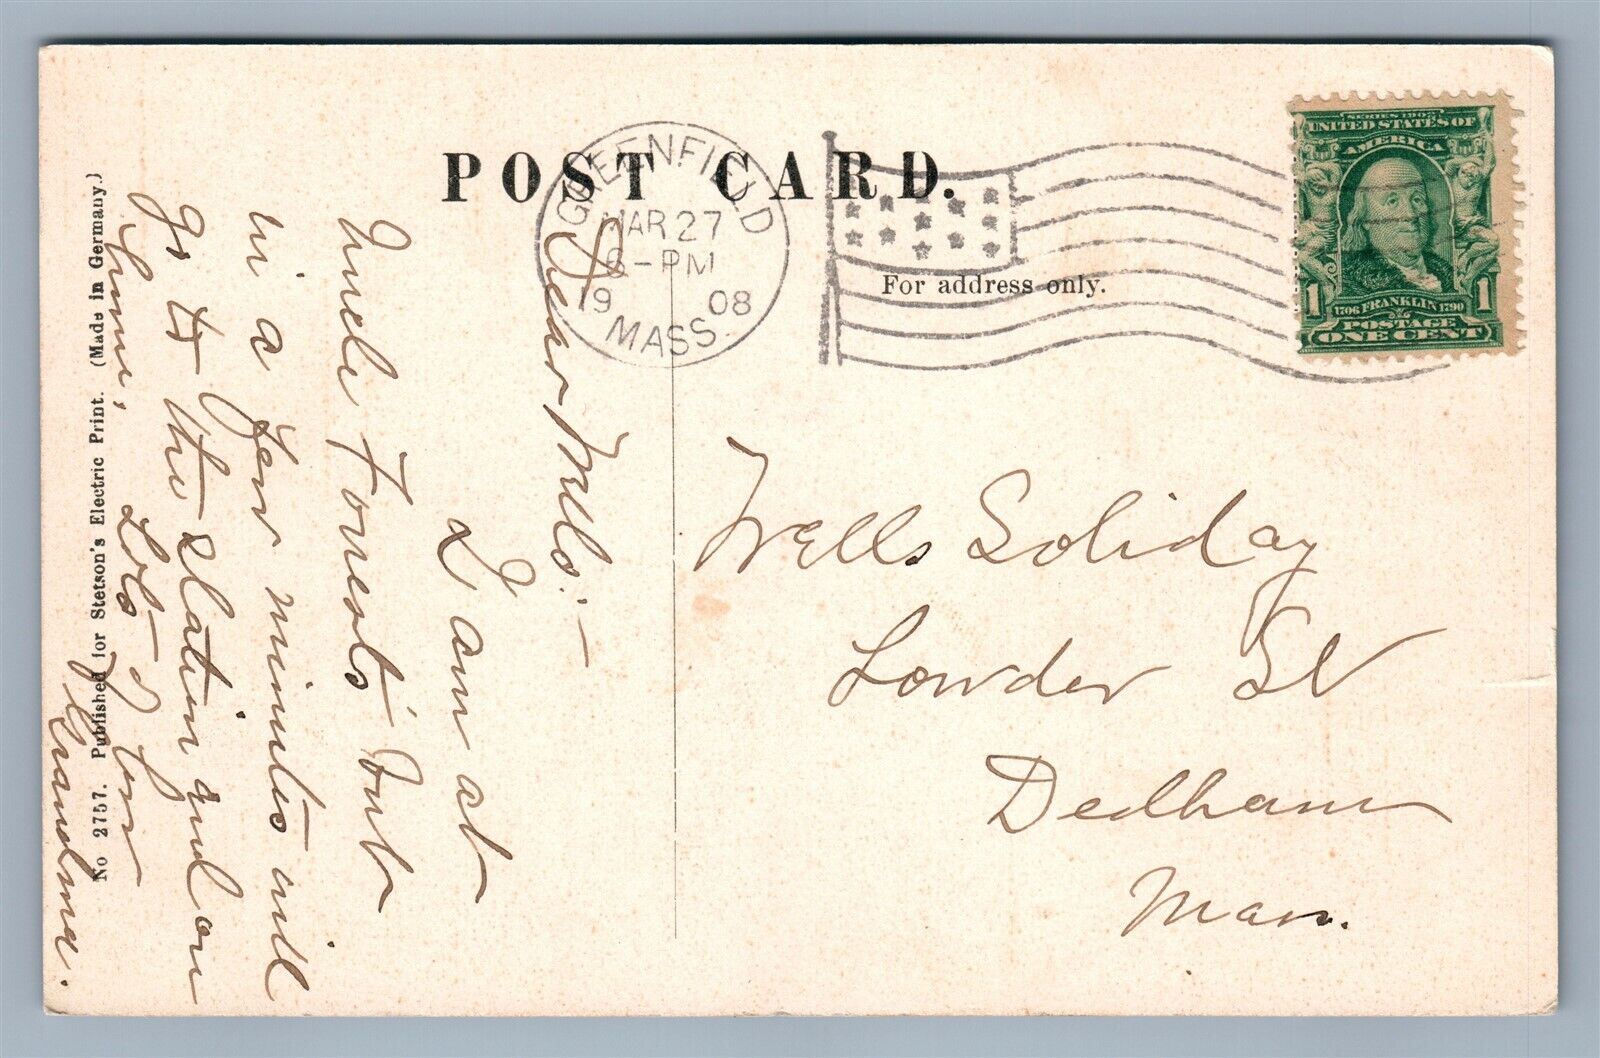 POST CARD.
For address only.
GREENFIELD
MAR 27
8-PM
1908
MASS.
SERIES 1902
UNITED STATES OF
AMERICA
1706 FRANKLIN 1790
1 1
POSTAGE
ONE CENT
Dear Wells:—
I am at
Uncle Forest's but
in a few minutes will
go to the station and on
home, Lots of love
Grandma.
Wells Soliday
Lowder St
Dedham
Mass.
No 2757. Published for Stetson's Electric Print. (Made in Germany.)